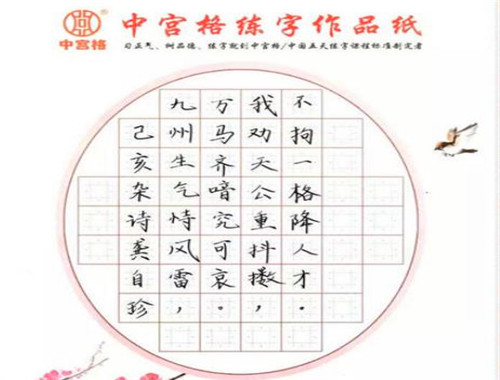 中宫格
中宫格练字作品纸
习正气、树品德、练字就到中宫格/中国五天练字课程标准制定者
己亥杂诗龚自珍
九州生气恃风雷，
万马齐喑究可哀。
我劝天公重抖擞，
不拘一格降人才.